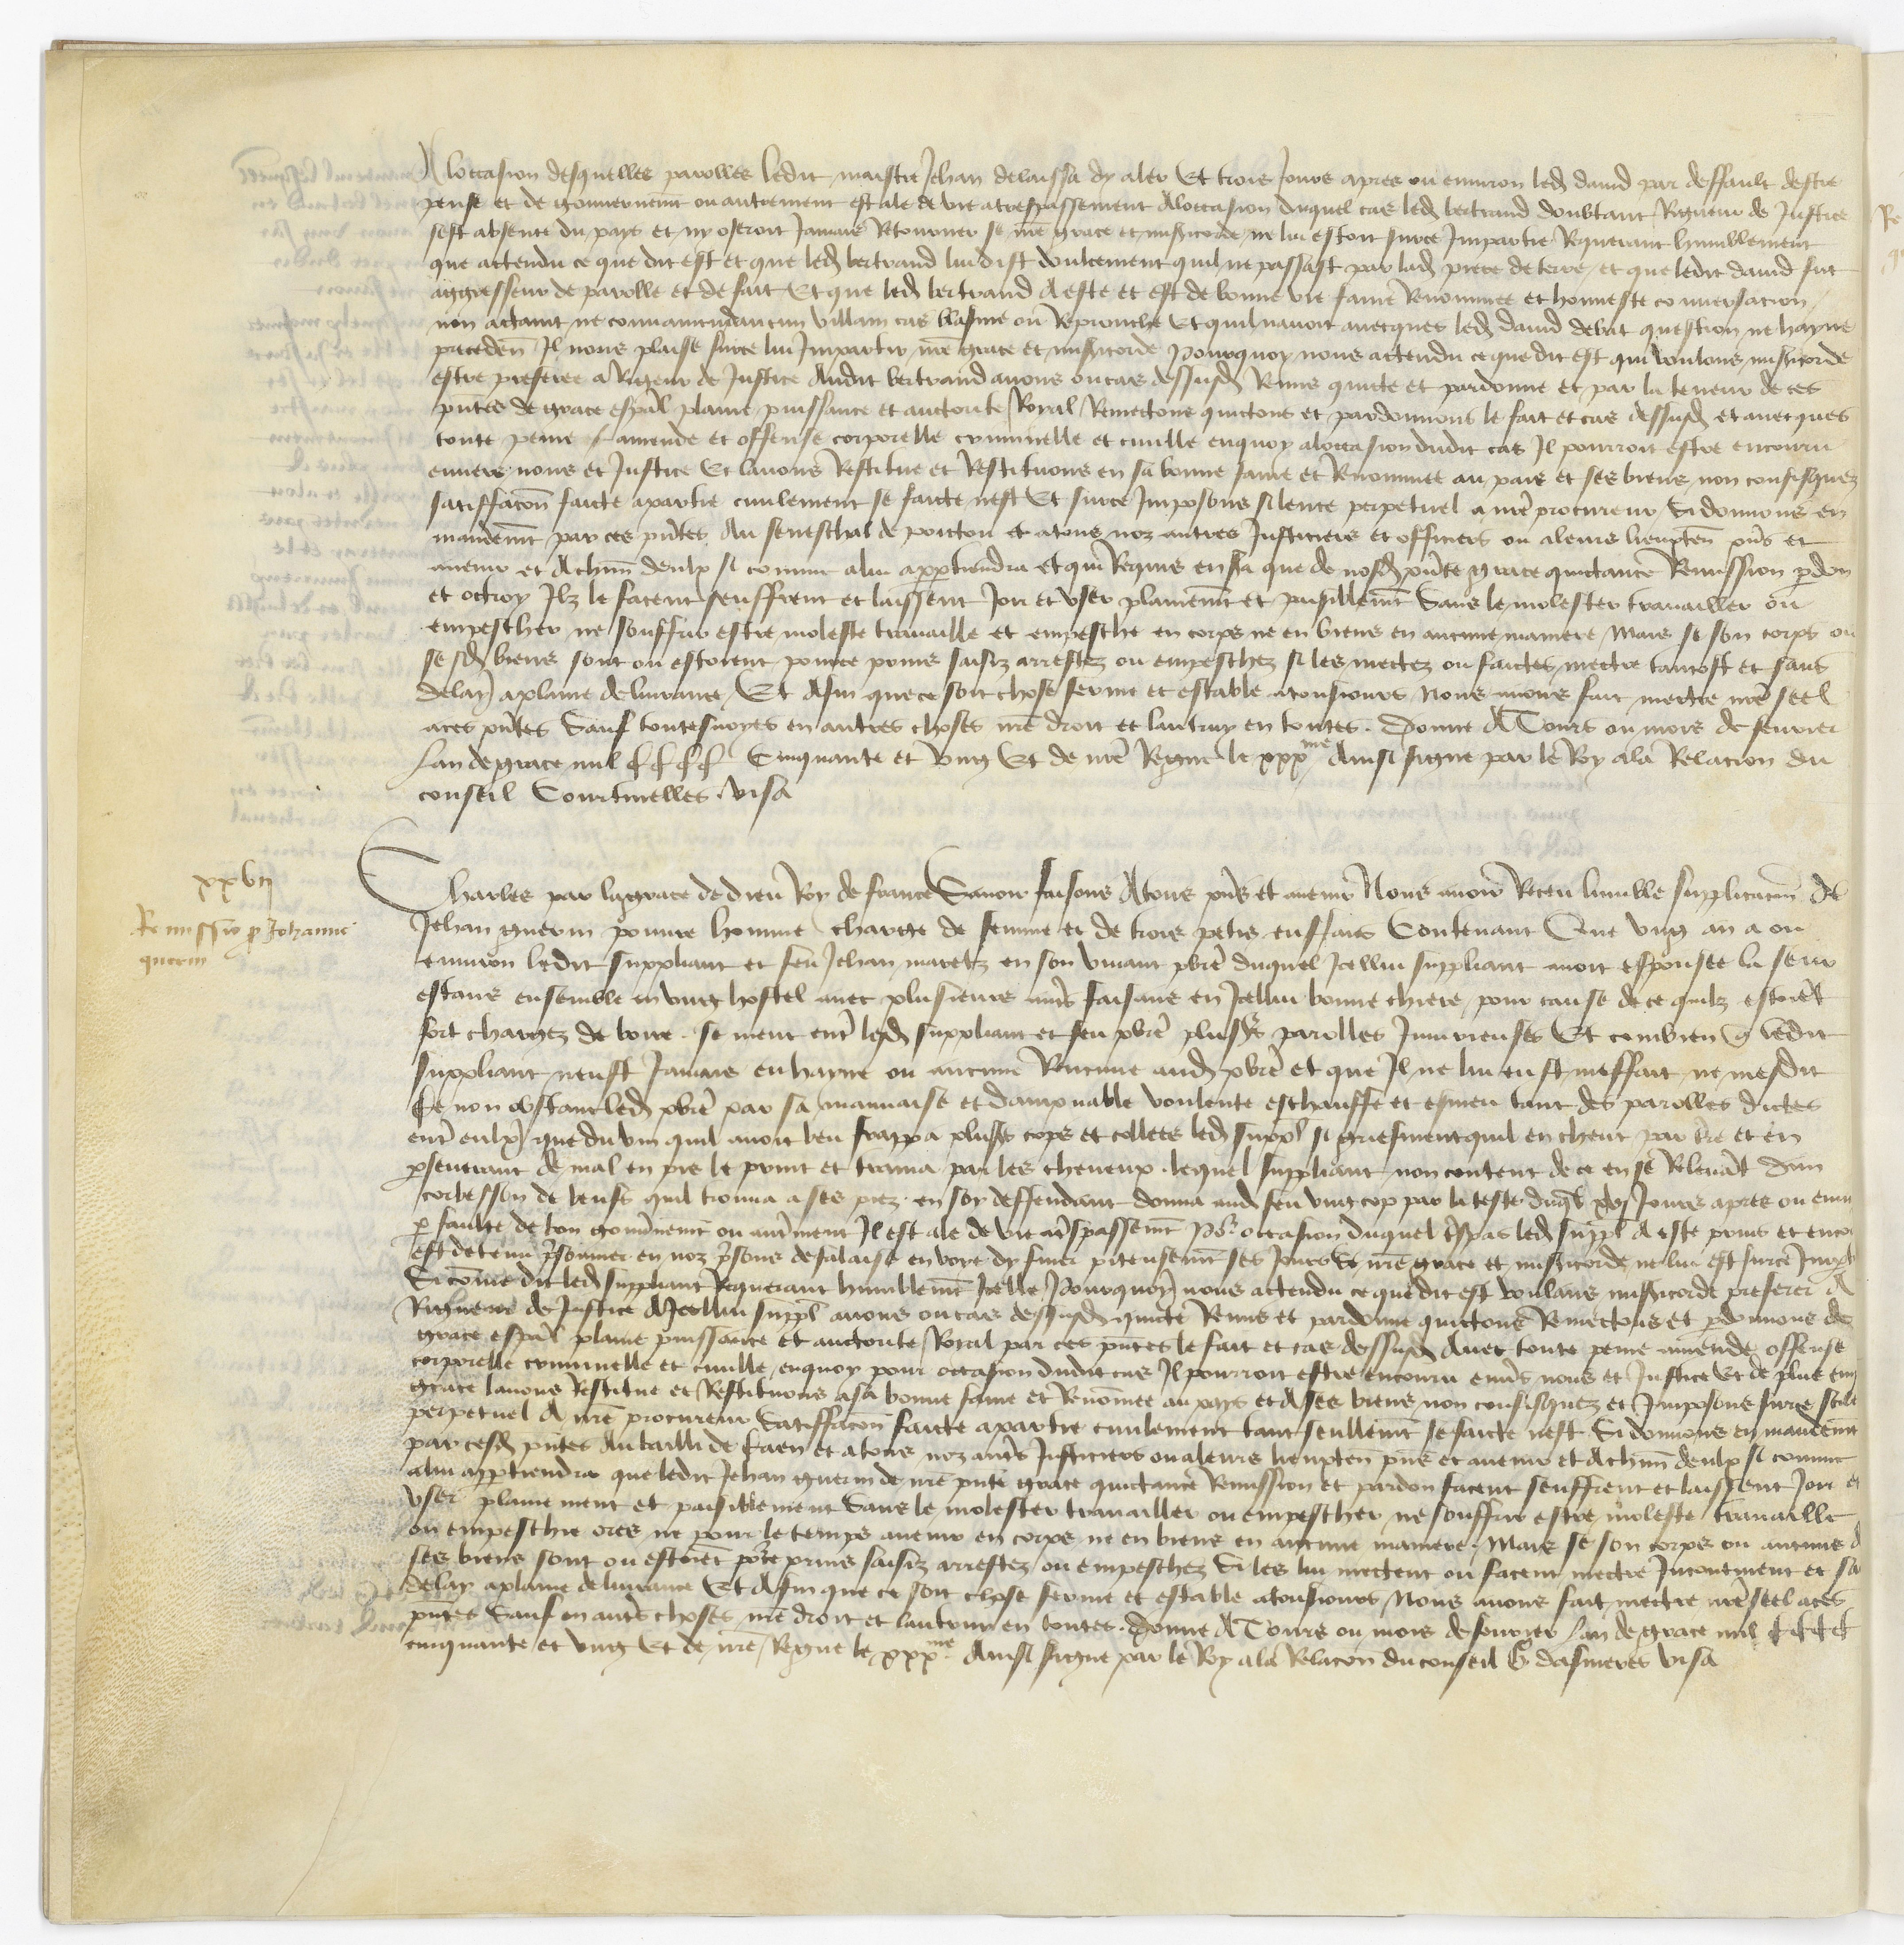 A loccasion desquelles parolles ledit maistre Jehan delaissa dy aler Et trois Jours apres ou environ led david par deffault destre
pensé et de gouvernemt ou autrement est ale de vie a trespassement A loccasion duquel cas led bertrand doubtant Rigueur de Justice
sest absenté du pays et ny oseroit Jamais Retourner se nre grace et misericorde ne lui estoit surce Impartie Requerant humblement
que actendu ce que dit est et que led bertrand lui dist doulcement quil ne passast par lad piece de terre et que ledit david fut
aggresseur de parolle et de fait Et que led bertrand A esté et est de bonne vie fame Renommee et honneste conversacion
non actaint ne convaincu daucun villain cas blasme ou Reprouche Et quil navoit avecques led david debat question ne hayne
preceden Il nous plaise surce lui Impartir nre grace et misericorde Pourquoy nous actendu ce que dit est qui voulons misericorde
estre preferee a Rigeur de Justice Audit bertrand avons ou cas dessusd Remis quicté et pardonné et par la teneur de ces
pntes de grace espal plaine puissance et auctorité Royal Remectons quictons et pardonnons le fait et cas dessusd et avecques
toute peine amende et offense corporelle criminelle et civille enquoy aloccasion dudit cas Il pourroit estre encouru
envers nous et Justice Et lavons Restitué et Restituons en sa bonne fame et Renommee au pais et ses biens non confisquez
satisfacon faicte a partie civilement se faicte nest Et surce Imposons silence perpetuel a nre procureur Si donnons en
mandemt par ces pntes Au seneschal de poictou et atous noz autres Justiciers et officiers ou aleurs lieuxten pns et
avenir et Achun deulx si comme alui appartiendra et qui Requis en sera que de nosd pnte grace quictance Remission pdon
et octroy Ilz le facent seuffrent et laissent Joir et user plainemt et paisiblemt Sans le molester travailler ou
empescher ne souffrir estre molesté travaillé et empesché en corps ne en biens en aucune maniere Mais se son corps ou
sesd biens sont ou estoient pource prins saisiz arrestez ou empeschez si les mectez ou faictes mectre tantost et sans
delay aplaine delivrance Et Afin que ce soit chose ferme et estable atousiours Nous avons fait mectre nre seel
aces pntes Sauf toutesvoyes en autres choses nre droit et lautruy en toutes. Donné A Tours ou mois de fevrier
Lan de grace mil CCCC Cinquante et ung Et de nre Regne le xxx.me Ainsi signé par le Roy ala Relacion du
conseil Courtinelles. visa
xxvij
Remissio p Johanne
guerin
Charles par la grace de dieu Roy de france Savoir faisons Atous pns et avenir Nous avoir Receu lumble supplicacion de
Jehan guerin pouvre homme chargé de femme et de trois petis enffans Contenant Que ung an a ou
environ ledit suppliant et feu Jehan maretz en son vivant pbre duquel Icellui suppliant avoit espousee la seur
estans ensemble en ung hostel avec plusieurs autrs faisans en Icellui bonne chiere pour cause de ce quilz estoiet
fort chargez de boire. se meut entr lesd suppliant et feu pbre plusrs parolles Iniurieuses Et combien q ledit
suppliant neust Jamais eu hayne ou aucune Rancune aud pbre et que Il ne lui eust meffait ne mesdit
Ce non obstant led pbre par sa mauvaise et dampnable voulenté eschauffé et esmeu tant des parolles dictes
entr eulx que du vin quil avoit beu frappa plusrs cops et collees led suppl si griefment quil en cheut par tre et en
psenerant de mal en pis le print et traina par les cheveux. lequel suppliant non content de ce en se Relevat dun
corbesson de leuss quil trouva a ses piez en soy deffendant donna aud feu ung cop par la teste duql xvj Jours apres ou envi
p faulte de bon gouvnemt ou autrment Il est alé de vie atrspassemt Pr occasion duquel trspas led suppl A esté prins et encor
est detenu prsonnier en noz prsons de falaise en voye dy finer piteusemt ses Jours Se nre grace et misericorde ne lui est surce Imp
Si come dit led suppliant Requerant humblemt Icelle Pourquoy nous actendu ce que dit est voulans misericorde preferer A
Rigueur de Justice AIcellui suppl avons ou cas dessusd quicté Remis et pardonné quictons Remectons et pdonnons de
grace espal plaine puissance et auctorité Royal par ces pntes le fait et cas dessusd Avec toute peine amende offense
corporelle criminelle et civille enquoy pour occasion dudit cas Il pourroit estre encouru envrs nous et Justice Et de plus em
grace lavons Restitué et Restituons asa bonne fame et Renomee au pays et Ases biens non confisquez et Imposons surce sile
perpetuel A nre procureur Satisfacon faicte apartie civilement tant seullemt se faicte nest Si donnons en mandemt
par cesd pntes Au bailli de Caen et atous noz autrs Justiciers ou aleurs lieuxten pns et avenir et Achun deulx si comme
alui apptiendra que ledit Jehan guerin de nre pnte grace quictance Remission et pardon facent seuffrent et laissent Joir et
user plainement et paisiblement Sans le molester travailler ou empescher ne souffrir estre molesté travaillé
ou empeschie ores ne pour le temps avenir en corps ne en biens en aucune maniere. Mais se son corps ou aucuns d
ses biens sont ou estoiet pource prins saisiz arrestez ou empeschez Si les lui mectent ou facent mectre Incontinent et sa
delay aplaine delivrance Et Afin que ce soit chose ferme et estable atousiours Nous avons fait mectre nre seel aces
pntes Sauf en autrs choses nre droit et lautruy en toutes. Donné A Tours ou mois de fevrier Lan de grace mil CCCC
cinquante et ung Et de nre Regne le xxx.me Ainsi signé par le Roy ala Relacon du conseil G dasnieres visa